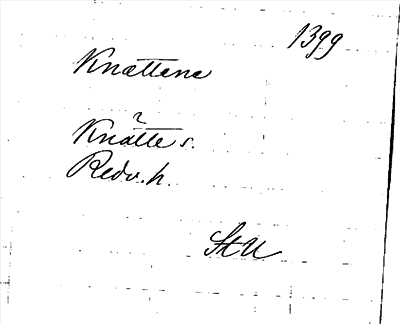 1399
Knættene
?
Knätte s.
Redv. h.
StU